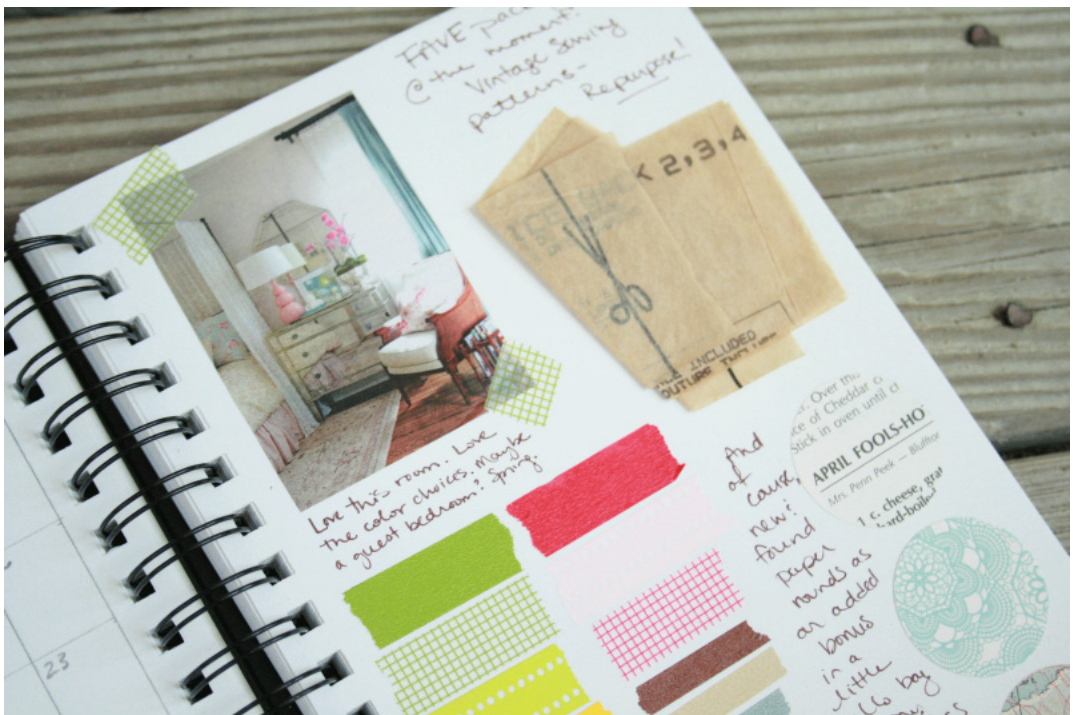 FAVE-pac
@ the moment:
Vintage Sewing
patterns-
Repurpose!
K 2,3,4
INCLUDED
Love this room. Love
the color choices. Maybe
a guest bedroom? Spring.
And
of
cause,
new?
found
paper
rounds as
an added
bonus
in a
little
bag
r. Over th
ce of Cheddar o
Stick in oven until ch
APRIL FOOLS-HO
Mrs. Penn Peek — Bluffton
1 c. cheese, grat
hard-boiled
23